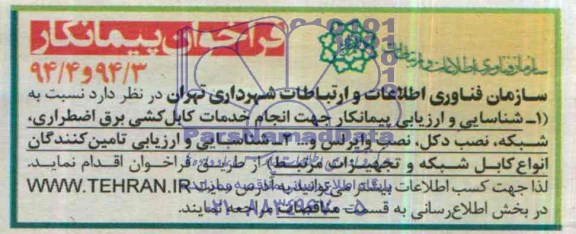 فراخوان پیمانکار
۹۴/۳ و ۹۴/۴
سازمان فناوری اطلاعات و ارتباطات شهرداری تهران
سازمان فناوری اطلاعات و ارتباطات شهرداری تهران در نظر دارد نسبت به
(۱_ شناسایی و ارزیابی پیمانکار جهت انجام خدمات کابل‌کشی برق اضطراری،
شبکه، نصب دکل، نصب وایرلس و... ۲_ شناسایی و ارزیابی تامین‌کنندگان
انواع کابل شبکه و تجهیزات مرتبط) از طریق فراخوان اقدام نماید.
لذا جهت کسب اطلاعات بیشتر می‌توانید به آدرس سایت WWW.TEHRAN.IR
در بخش اطلاع‌رسانی به قسمت مناقصات مراجعه نمایند.
ParsNamadData
۰۲۱-۸۸۳۴۹۶۷۰-۵